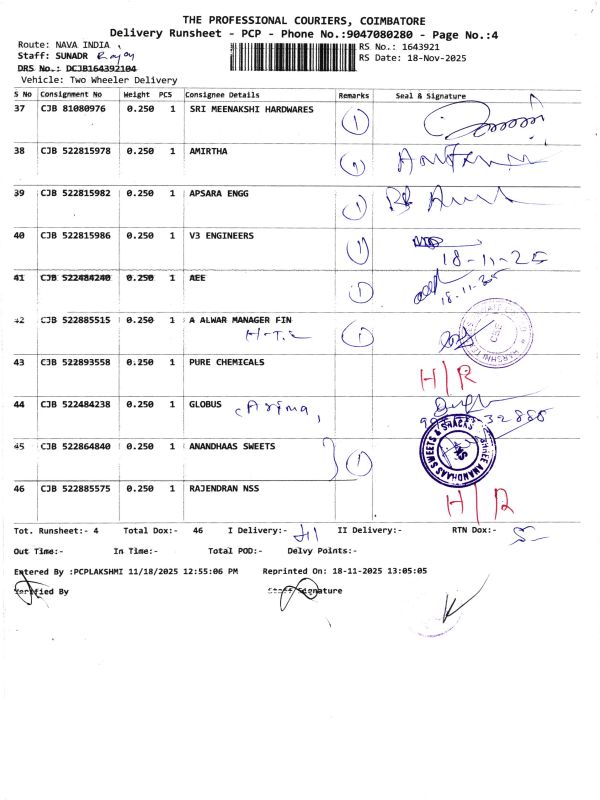 THE PROFESSIONAL COURIERS, COIMBATORE
Delivery Runsheet - PCP - Phone No.:9047080280 - Page No.:4
Route: NAVA INDIA
RS No.: 1643921
Staff: SUNADR
RS Date: 18-Nov-2025
DRS No.: DCJB164392104
Vehicle: Two Wheeler Delivery
S No Consignment No Weight PCS Consignee Details Remarks Seal & Signature
37 CJB 81080976 0.250 1 SRI MEENAKSHI HARDWARES 1
38 CJB 522815978 0.250 1 AMIRTHA 1
39 CJB 522815982 0.250 1 APSARA ENGG 1
40 CJB 522815986 0.250 1 V3 ENGINEERS 1 18-11-25
41 CJB 522484240 0.250 1 AEE 1 18-11-25
42 CJB 522885515 0.250 1 A ALWAR MANAGER FIN 1
43 CJB 522893558 0.250 1 PURE CHEMICALS H/R
44 CJB 522484238 0.250 1 GLOBUS
45 CJB 522864840 0.250 1 ANANDHAAS SWEETS 1
SHREE ANANDHAAS SWEETS & SNACKS
46 CJB 522885575 0.250 1 RAJENDRAN NSS H/R
Tot. Runsheet:- 4 Total Dox:- 46 I Delivery:- 41 II Delivery:- RTN Dox:- 5
Out Time:- In Time:- Total POD:- Delvy Points:-
Entered By :PCPLAKSHMI 11/18/2025 12:55:06 PM Reprinted On: 18-11-2025 13:05:05
Verified By Staff Signature